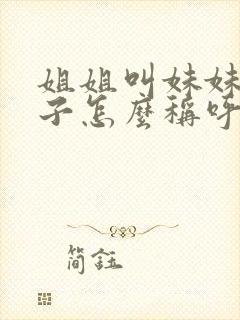 姐姐叫妹妹
子怎麼稱呼
簡鈺